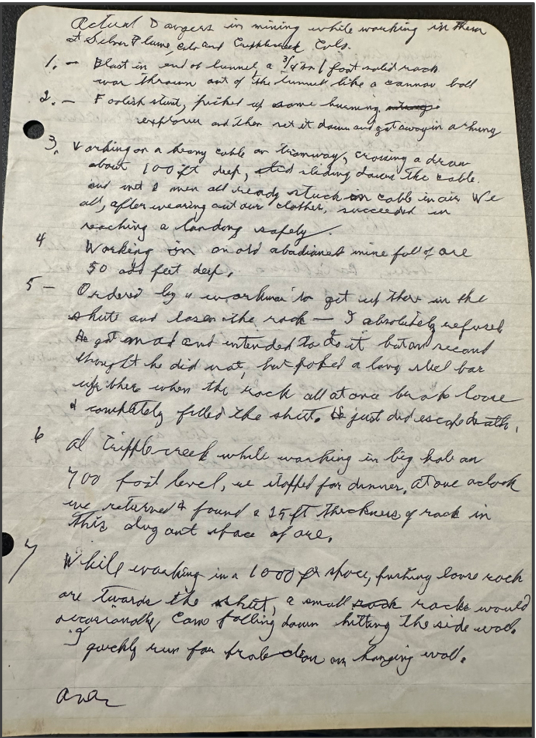 Actual Dangers in mining while working in them
at Silver Plume Colo and Cripplecreek Colo.
1. – Blast in end of tunnel a 3/4 to 1 foot solid rock
was thrown out of the tunnel like a cannon ball
2. – Foolish stunt, picked up some burning
explosive and then set it down and got away in a hurry
3. Working on a heavy cable on tramway, crossing a draw
about 100 ft deep, sliding down the cable.
and met 2 men all ready stuck on cable in air We
all, after wearing out our clothes, succeeded in
reaching a landing safely.
4 Working in an old abadianed mine full of ore
50 odd feet deep.
5 – Ordered by a workman to get up there in the
shute and losen the rock – I absolutely refused
He got mad and intended to do it but on second
thought he did not, but poked a long steel bar
up there when the rock all at once broke loose
& completely filled the shute. He just did escape death.
6 At Cripple creek while working in big hole on
700 foot level, we stopped for dinner, at one aclook
we returned & found a 25 ft thickness of rock in
this dug out space of ore.
7 While working in a 1000 ft, pushing loose rock
ore towards the shute, a small rocks would
occasionally came falling down hitting the side wall.
I quickly run for protection on hanging wall.
over